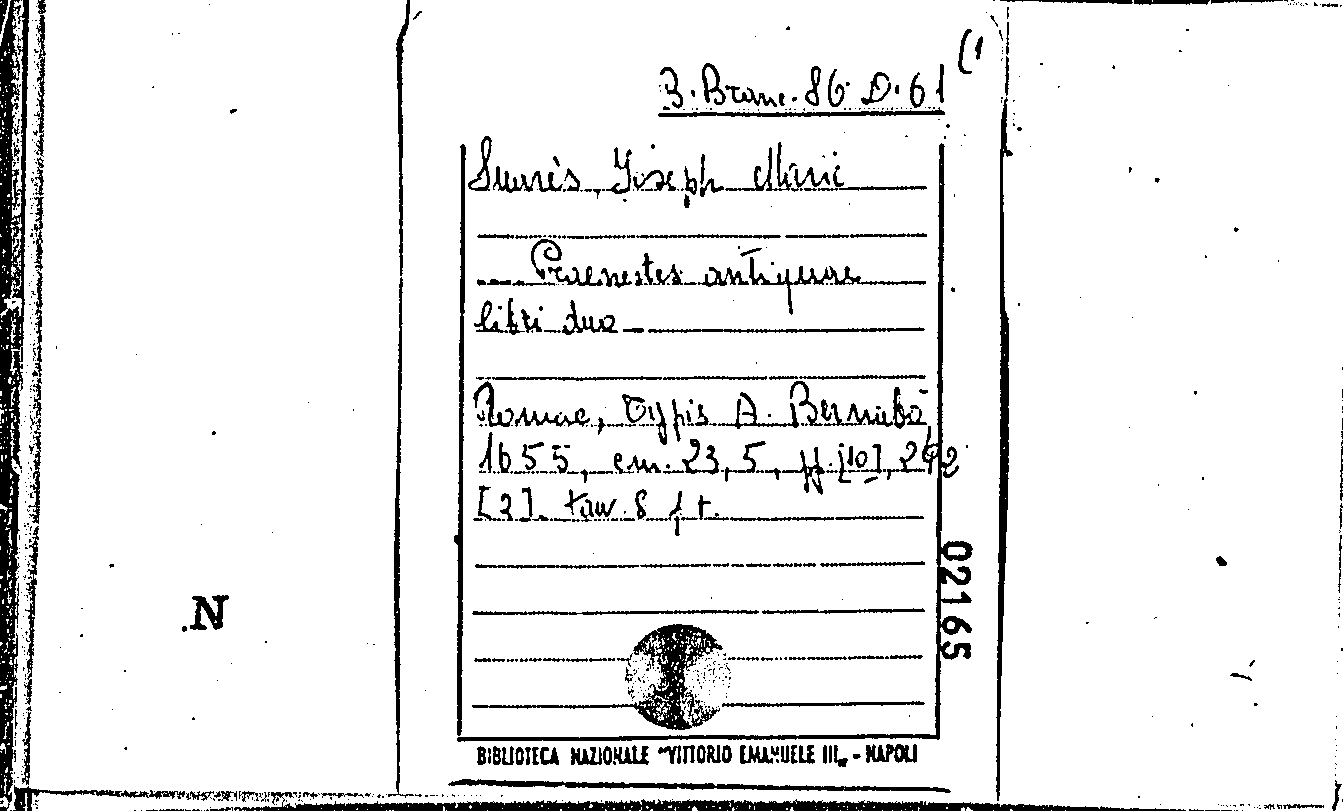 (1
B. Branc. 86 D. 61
Suarès, Joseph Marie
Praenestes antiquae
libri duo
Romae, Typis A. Bernabò
1655, cm. 23,5, pp. [10], 242
[2]. tav. 8 f. t.
02165
N
BIBLIOTECA NAZIONALE "VITTORIO EMANUELE III" - NAPOLI